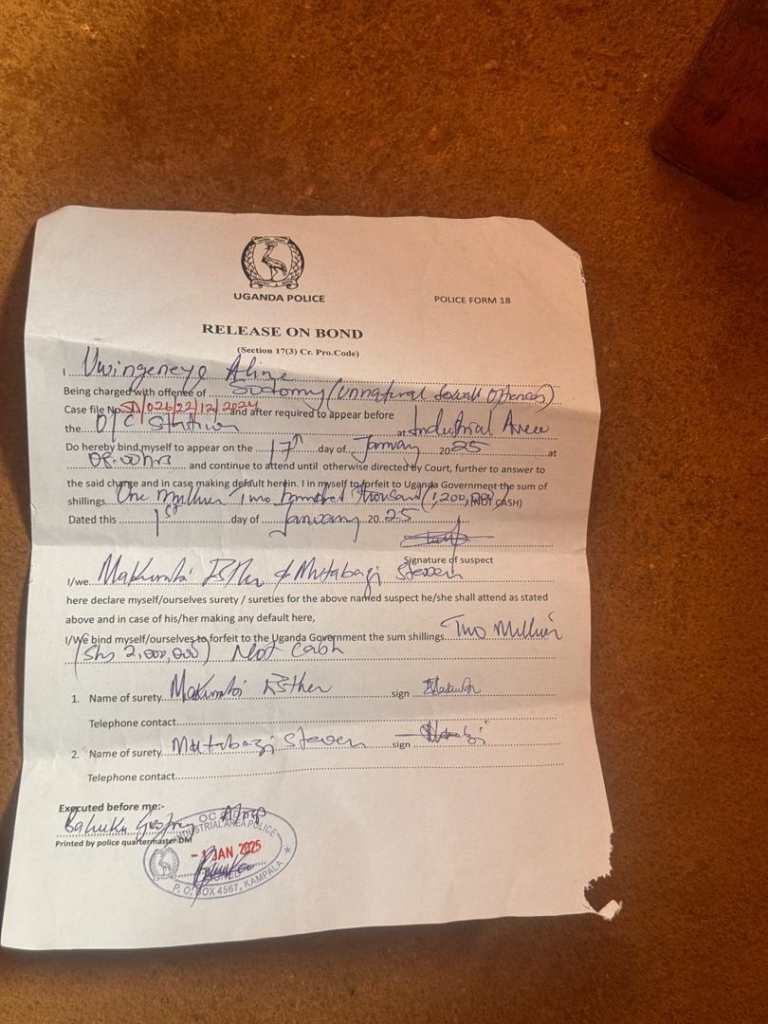 UGANDA POLICE
POLICE FORM 18
RELEASE ON BOND
(Section 17(3) Cr. Pro.Code)
I Uwingeneye Aline
Being charged with offence of Sodomy (Unnatural Sexual Offences)
Case file No. SD/026/22/12/2024 and after required to appear before
the O/C Station at Industrial Area
Do hereby bind myself to appear on the 17th day of January 2025 at
08.00hrs and continue to attend until otherwise directed by Court, further to answer to
the said charge and in case making default herein. I in myself to forfeit to Uganda Government the sum of
shillings One Million Two hundred thousand (1,200,000) (NOT CASH)
Dated this 1st day of January 20 25
Signature of suspect
I/we Makumbi Esther & Mutabazi Steven
here declare myself/ourselves surety / sureties for the above named suspect he/she shall attend as stated
above and in case of his/her making any default here,
I/We bind myself/ourselves to forfeit to the Uganda Government the sum shillings Two Million
(Shs 2,000,000) Not Cash
1. Name of surety Makumbi Esther sign
Telephone contact
2. Name of surety Mutabazi Steven sign
Telephone contact
Executed before me:-
Printed by police quartermaster DM
OC
INDUSTRIAL AREA POLICE
- 1 JAN 2025
SIGNED
P. O. BOX 4567, KAMPALA